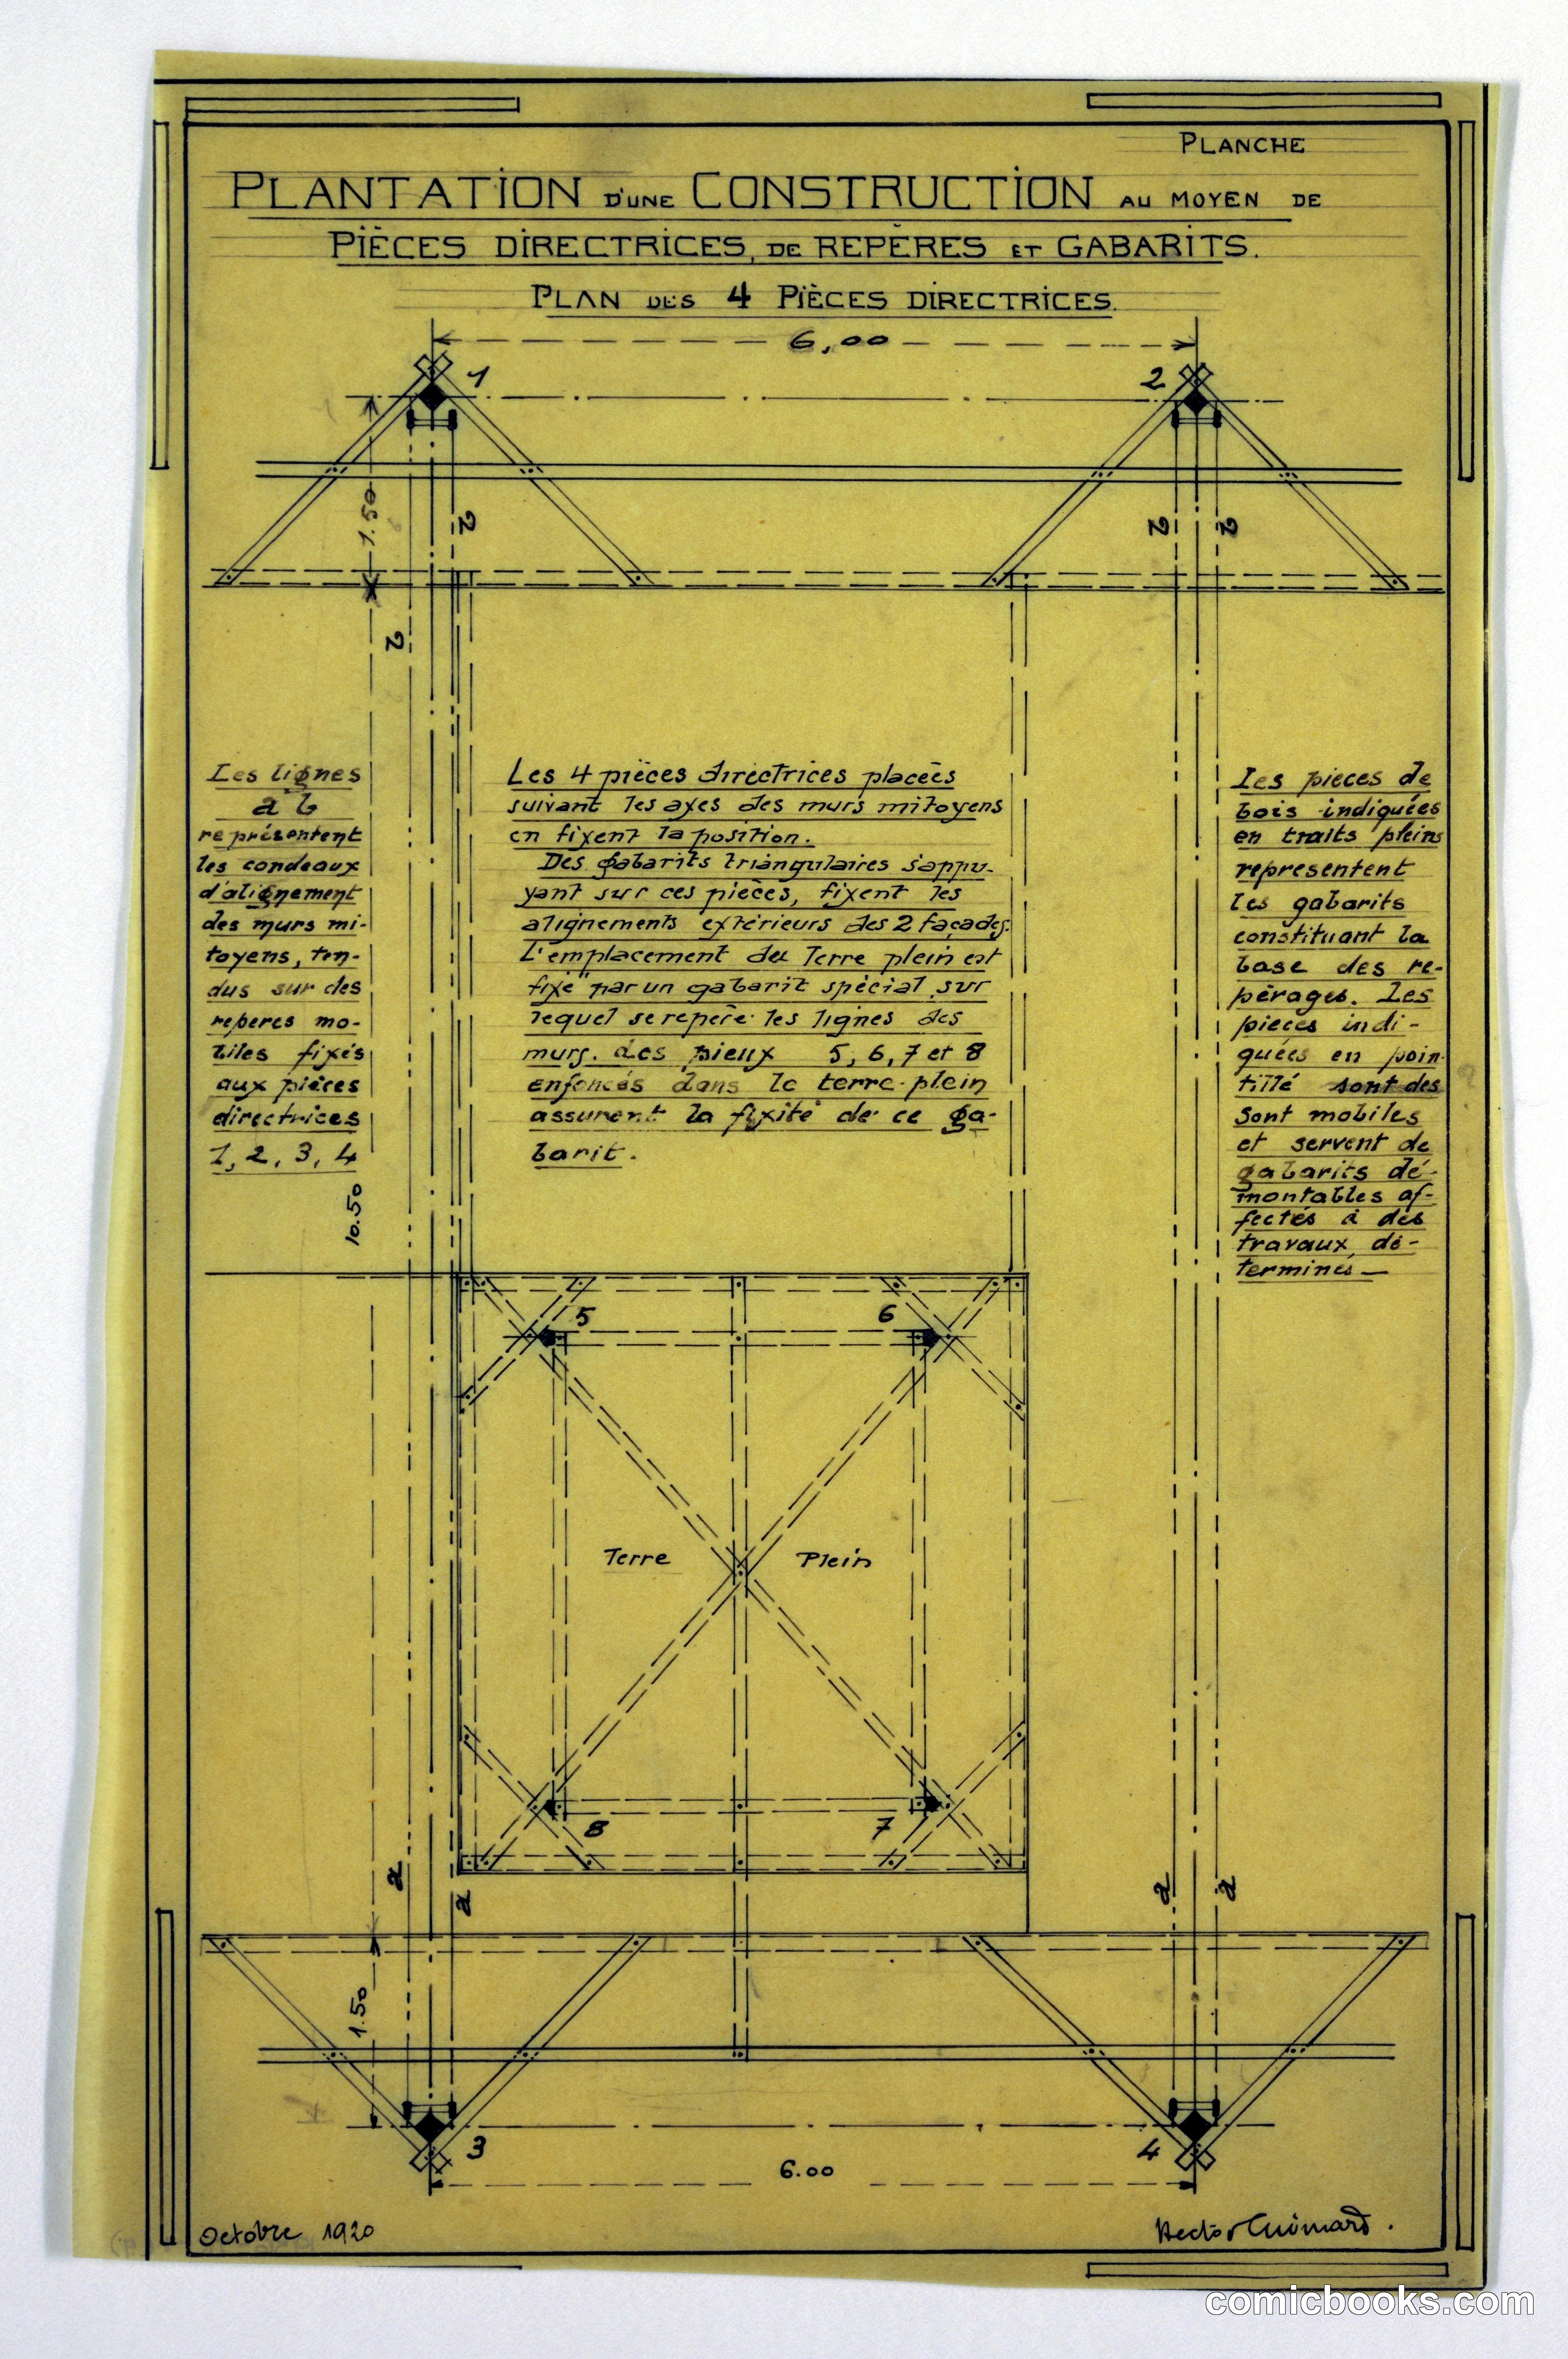 PLANCHE
PLANTATION D'UNE CONSTRUCTION AU MOYEN DE
PIÈCES DIRECTRICES, DE REPÈRES ET GABARITS.
PLAN DES 4 PIÈCES DIRECTRICES.
6,00
1
2
1.50
2
2
2
2
Les lignes
a b
représentent
les cordeaux
d'alignement
des murs mi-
toyens, ten-
dus sur des
reperes mo-
biles fixés
aux pièces
directrices
1, 2, 3, 4
10.50
Les 4 pièces directrices placées
suivant les axes des murs mitoyens
en fixent la position.
Des gabarits triangulaires s'appu-
yant sur ces pièces, fixent les
alignements extérieurs des 2 façades.
L'emplacement du Terre plein est
fixé par un gabarit spécial sur
lequel se repère les lignes des
murs. des pieux 5, 6, 7 et 8
enfoncés dans le terre-plein
assurent la fixité de ce ga-
barit.
Les pieces de
bois indiquées
en traits pleins
representent
les gabarits
constituant la
base des re-
pérages. Les
pieces indi-
quées en poin-
tillé sont des
sont mobiles
et servent de
gabarits dé-
montables af-
fectés à des
travaux dé-
terminés —
5
6
Terre Plein
8
7
a
a
a
a
1.50
3
4
6.00
Octobre 1920
Hector Guimard.
comicbooks.com